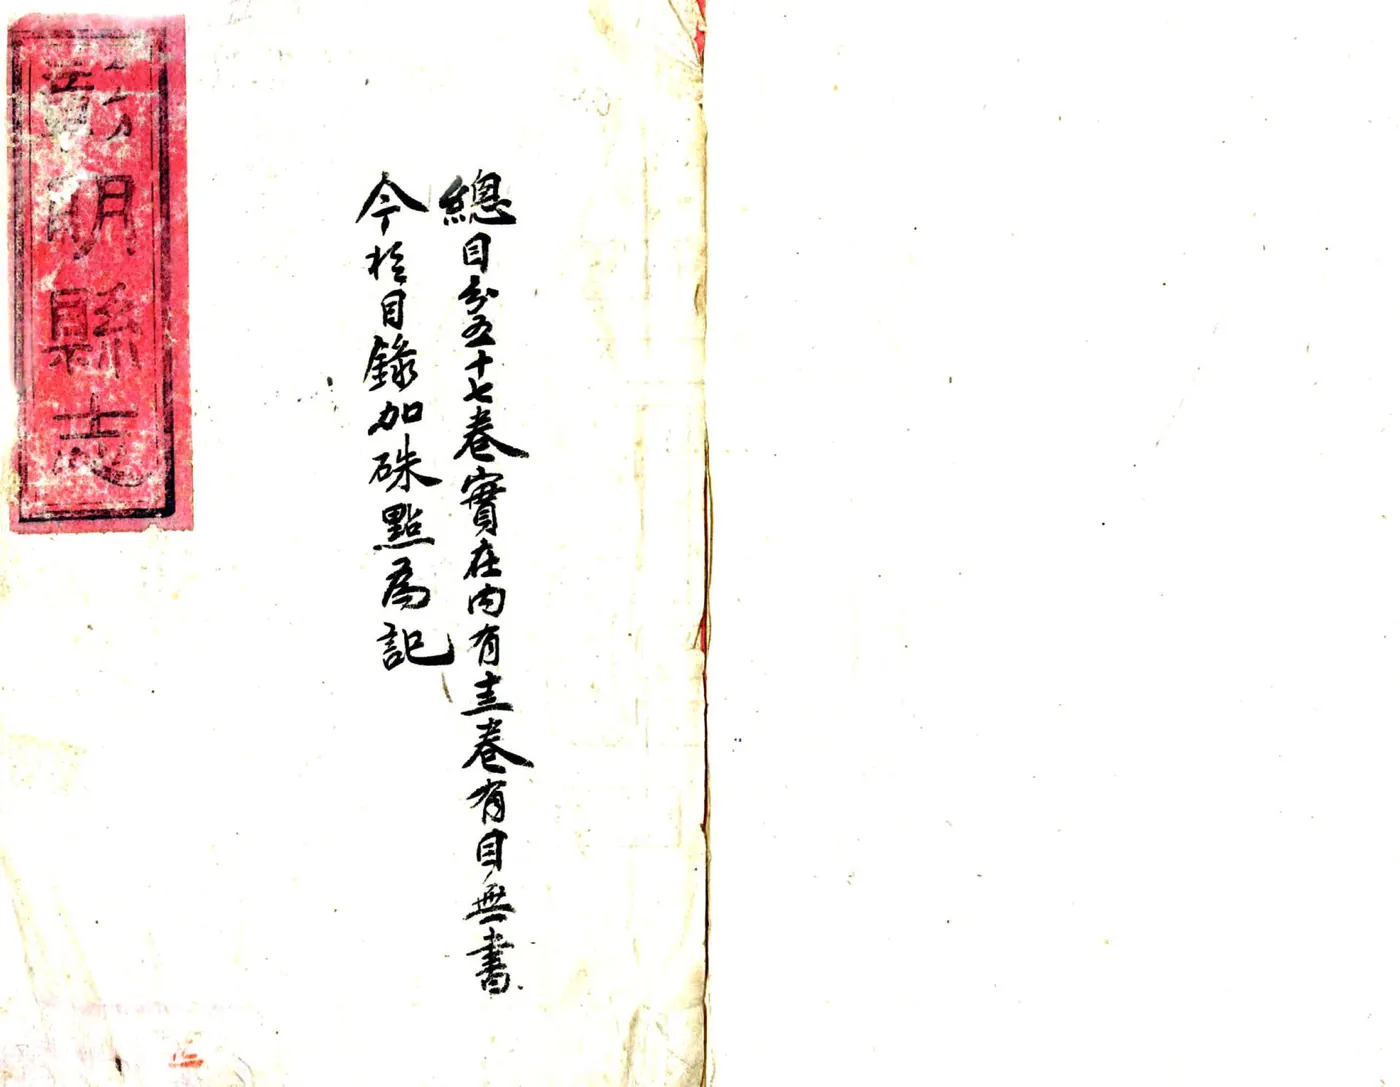 總目分五十七卷實在内有十三卷有目無書
今於目錄加硃點為記
彰明縣志